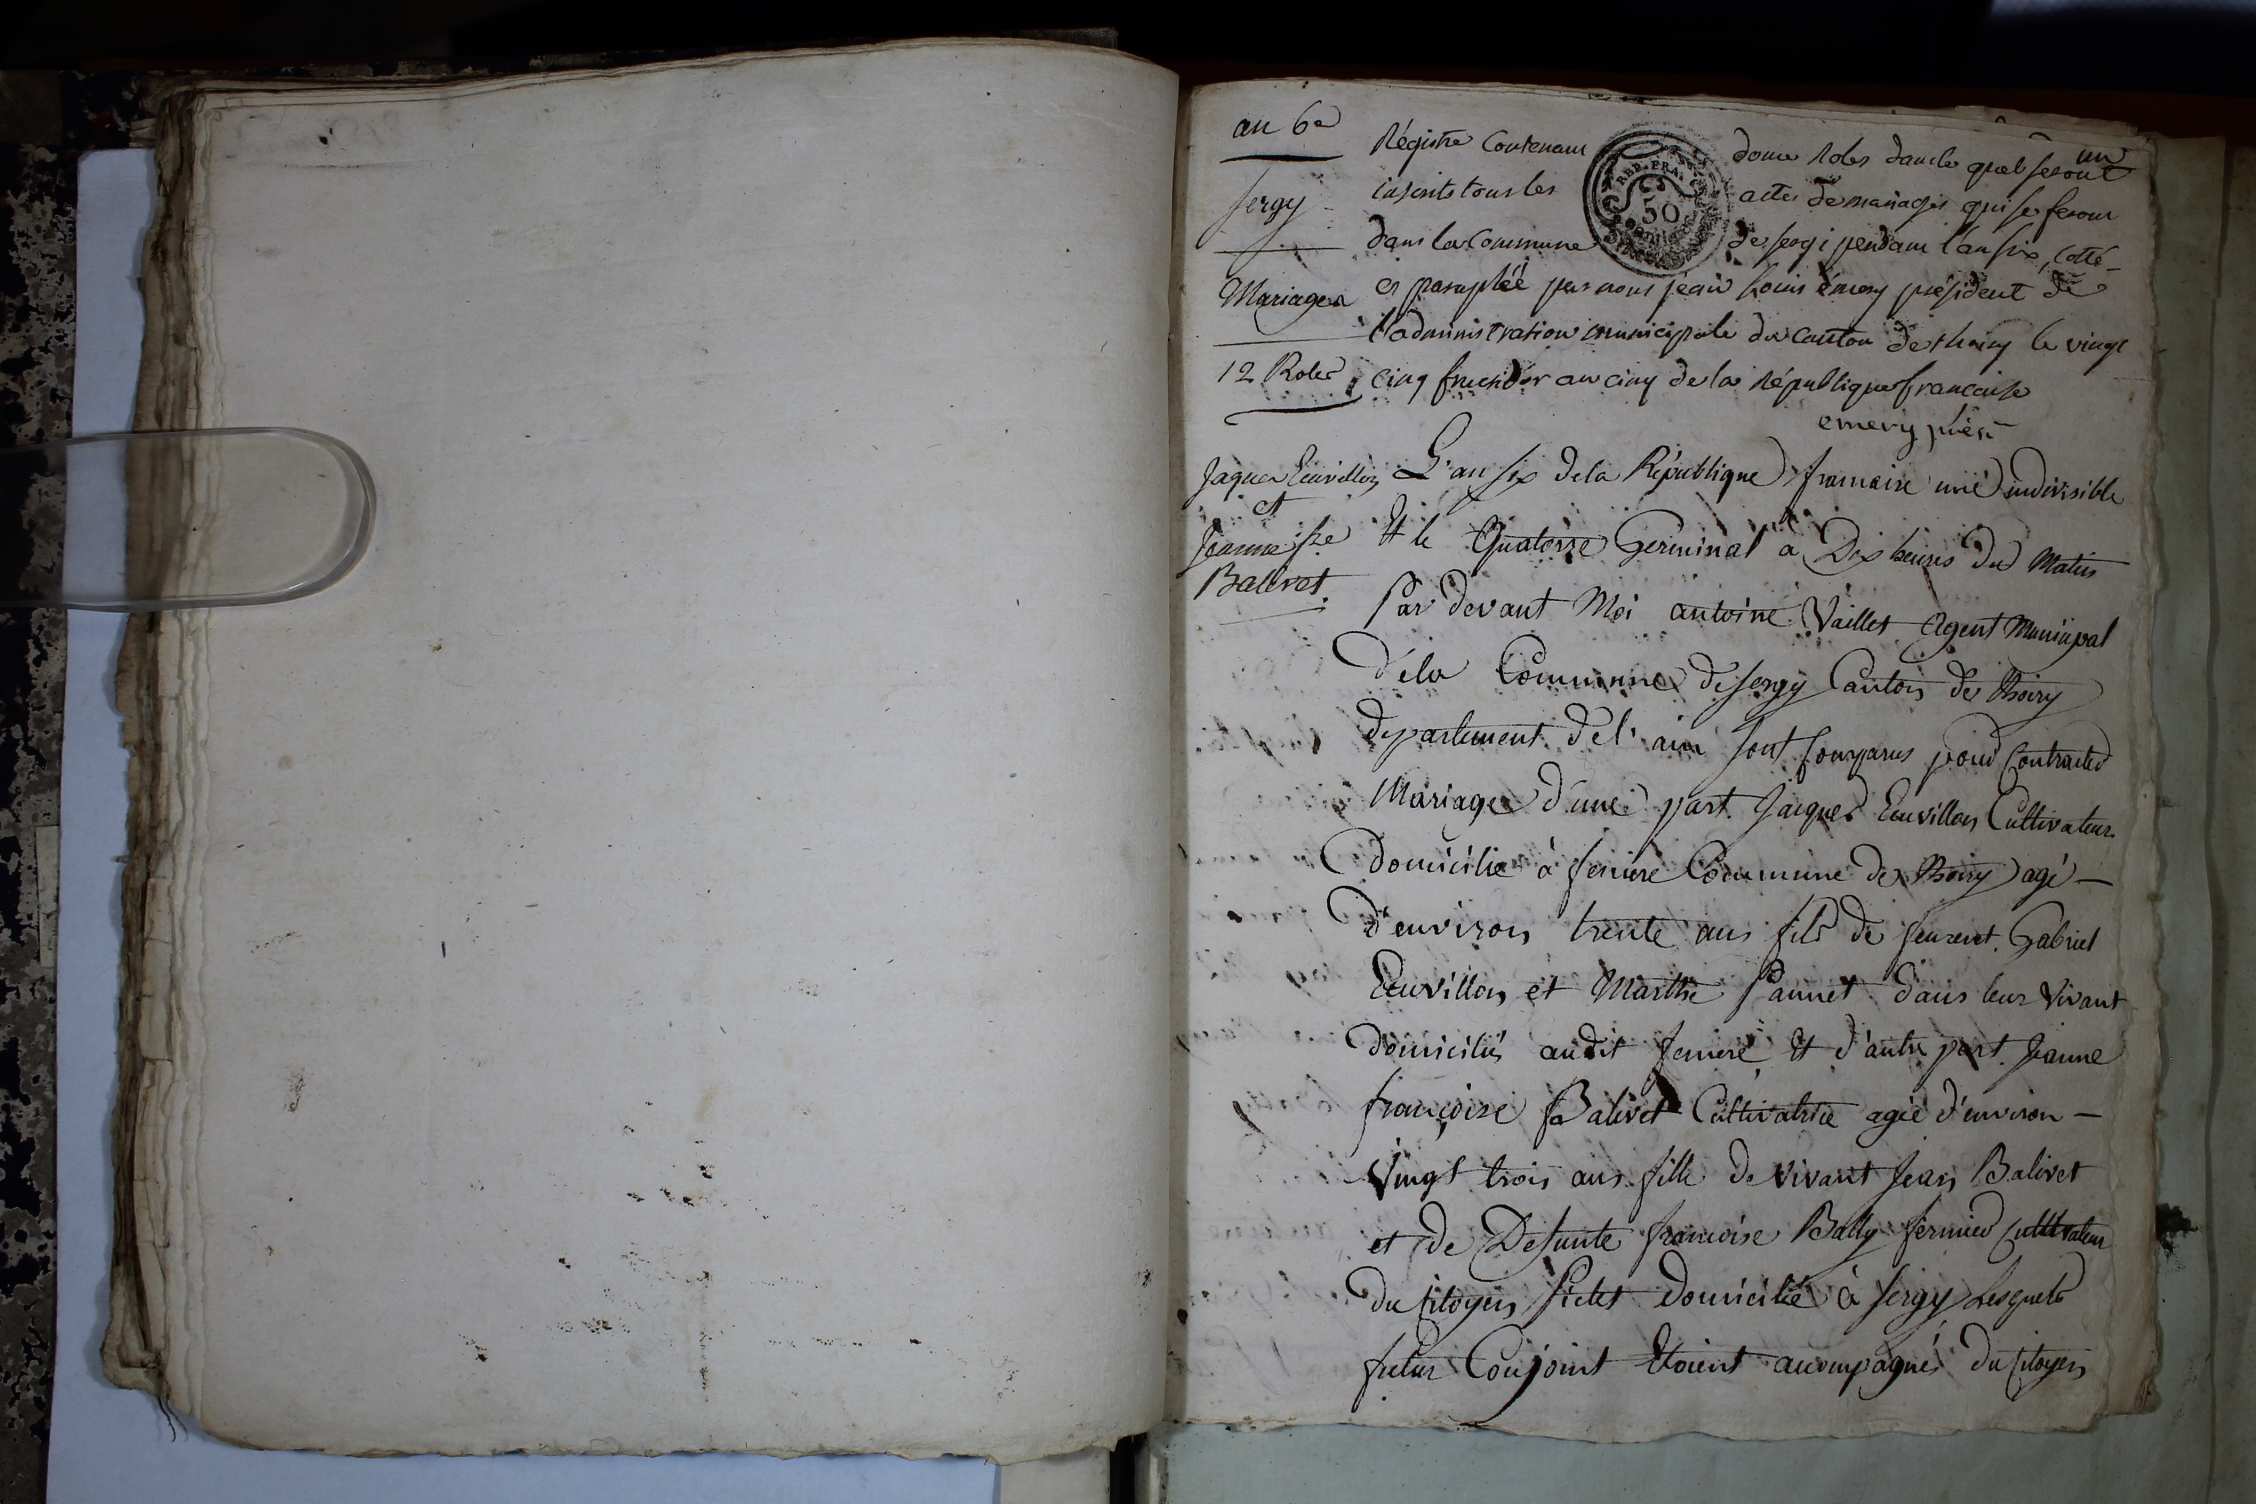 un
an 6e
Sergy
Mariages
12 Roles
Régistre Contenant douze Roles dans le quel seront
inscrits tous les actes de mariages qui se feront
dans la Commune de sergi pendant l'an six, cotté
et paraphéé par nous jean Louis émery président de
l'administration municipale du canton de thoiry le vingt
cinq fructidor an cinq de la République francaise
emery prést
REP. FRA.
50
Jaques Cuvillon
et
Jeanne fse
Balivet.
L'an six de la République francaise une indivisible
Et le Quatorze Germinal à Dix heures du Matin
Par devant Moi antoine Vaillet Agent Municipal
de la Commune de sergy Canton de Thoiry
departement de l'ain sont Comparus pour Contracter
Mariage d'une part Jacques Cuvillon Cultivateur
domicilié à fenière Commune de Thoiry agé
d'environ trente ans fils de feurent Gabriel
Cuvillon et Marthe Pannet dans leur vivant
domiciliés audit feniere, Et d'autre part Jeanne
françoise Balivet Cultivatrice agée d'environ
Vingt trois ans fille de vivant Jean Balivet
et de Defunte francoise Bally fermier Cultivateur
du Citoyen Pictet domicilié à sergy Lesquels
futur Conjoint Etoient acompagnés du Citoyen